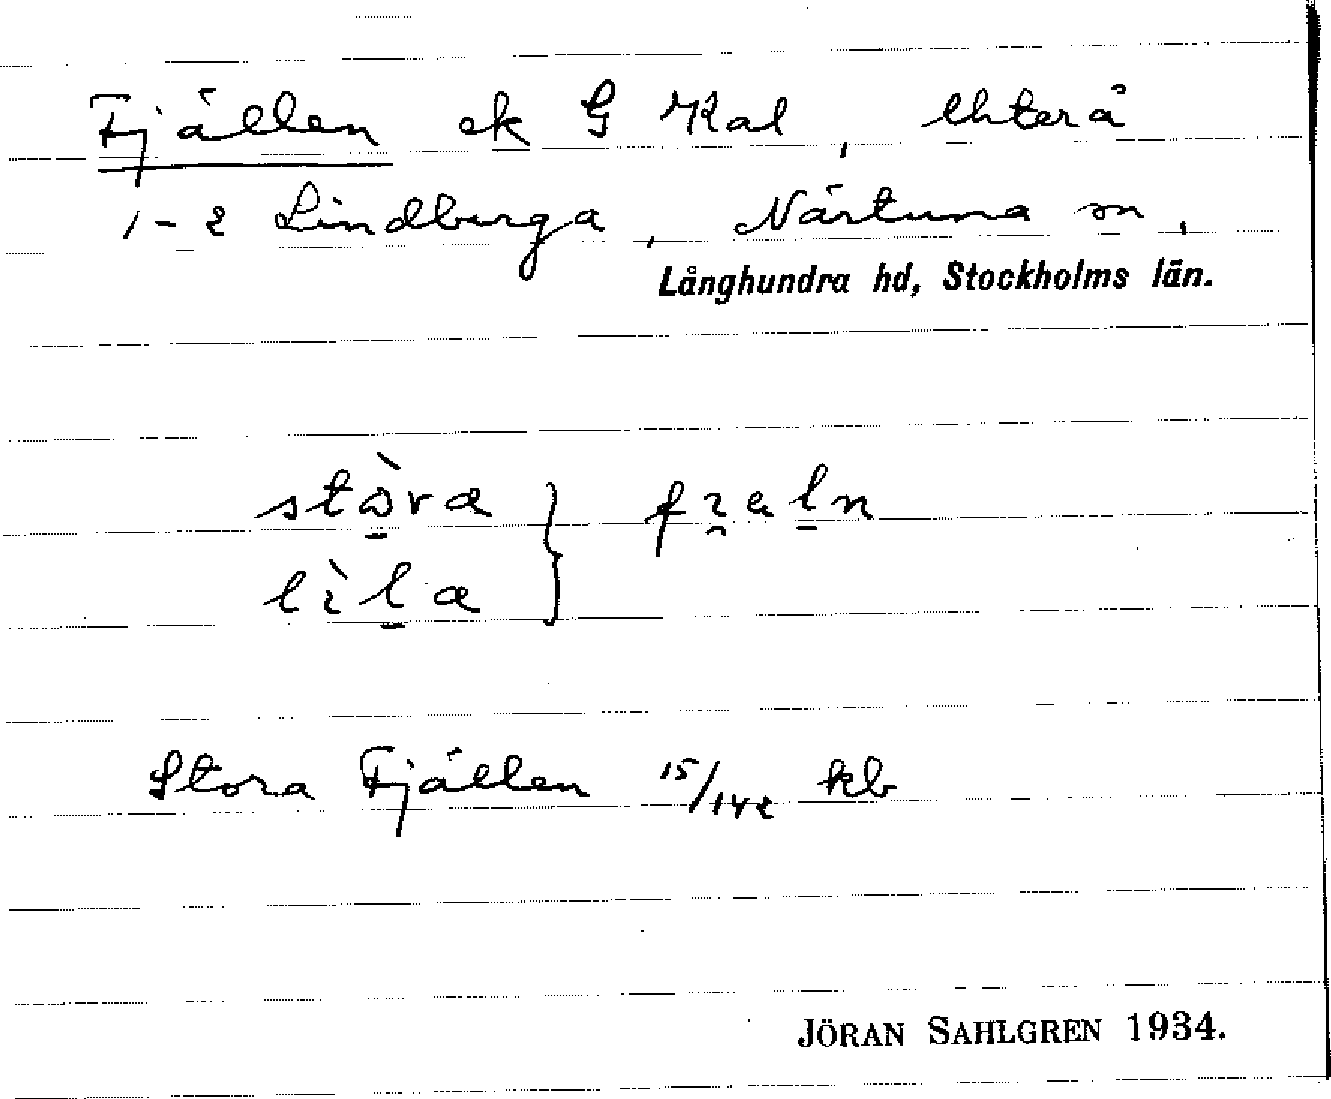 Fjällen ek G Kal, Ekterå
1-2 Lindberga, Närtuna sn,
Långhundra hd, Stockholms län.
stò̱ra } fɿ̯al̲n
lìl̲a
Stora Fjällen 15/142 kb
JÖRAN SAHLGREN 1934.